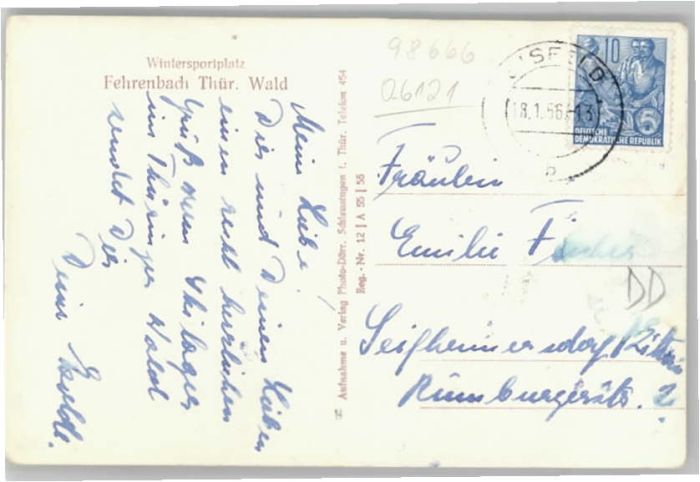 Wintersportplatz
Fehrenbach Thür. Wald
Meine Liebe!
Dir und Deinen Lieben
einen recht herzlichen
Gruß vom Skilager
im Thüringer Wald
sendet Dir
Deine
Aufnahme u. Verlag Photo-Dörr, Schleusingen i. Thür. Telefon 454
Reg.-Nr. 12 | A 55 | 56
98666
06121
SFELD
18.1.56.-13
b
10
DEUTSCHE
DEMOKRATISCHE REPUBLIK
5
Fräulein
Emilie Fischer
DD
Seifhennersdorf
Rumburgerstr. 2